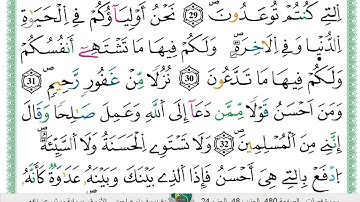 اَ۬لتِے كُنتُمْ تُوعَدُونَۖ 29 نَحْنُ أَوْلِيَآؤُكُمْ فِے اِ۬لْحَيَوٰةِ
اِ۬لدُّنْيا وَفِے اِ۬لَاخِرَةِۖ وَلَكُمْ فِيهَا مَا تَشْتَهِےٓ أَنفُسُكُمْ
وَلَكُمْ فِيهَا مَا تَدَّعُونَ 30 نُزُلاٗ مِّنْ غَفُورٖ رَّحِيمٖۖ 31
وَمَنَ اَحْسَنُ قَوْلاٗ مِّمَّن دَعَآ إِلَى اَ۬للَّهِ وَعَمِلَ صَٰلِحاٗ وَقَالَ
إِنَّنِے مِنَ اَ۬لْمُسْلِمِينَۖ 32 وَلَا تَسْتَوِے اِ۬لْحَسَنَةُ وَلَا اَ۬لسَّيِّئَةُۖ
اُ۪دْفَعْ بِالتِے هِيَ أَحْسَنُ فَإِذَا اَ۬لذِے بَيْنَكَ وَبَيْنَهُۥ عَدَٰوَةٞ كَأَنَّهُۥ